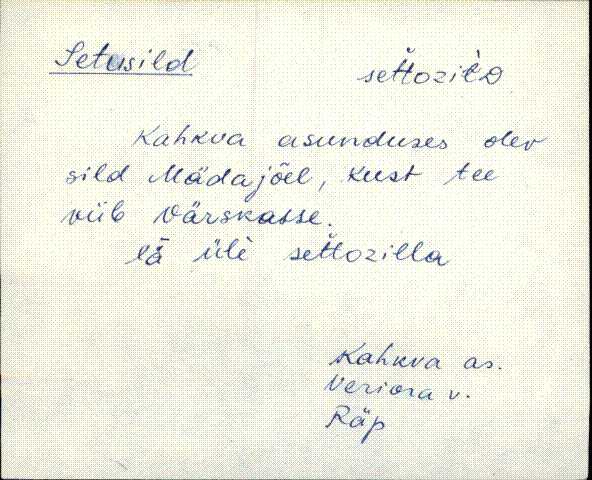 Setusild settozilD
Kahkva asunduses olev
sild Mädajõel, kust tee
viib Värskasse.
lä üle settozilla
Kahkva as.
Veriora v.
Räp